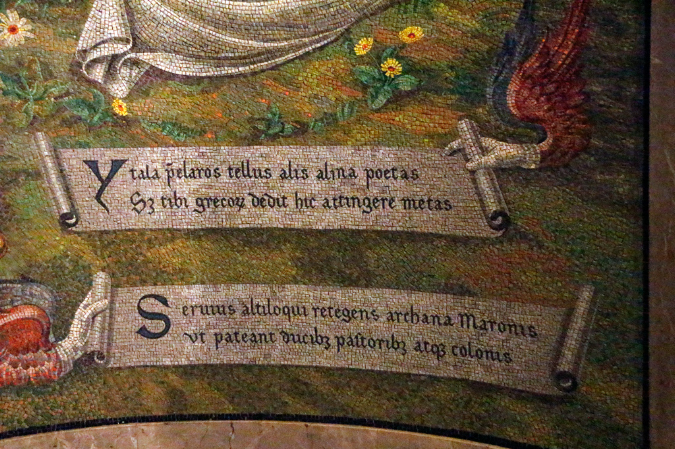 Ytala p̄claros tellus alis alma poetas
Sꝫ tibi grecoꝝ dedit hic attingere metas
Seruius altiloqui retegens archana Maronis
vt pateant ducibꝫ paſtoribꝫ atqꝫ colonis